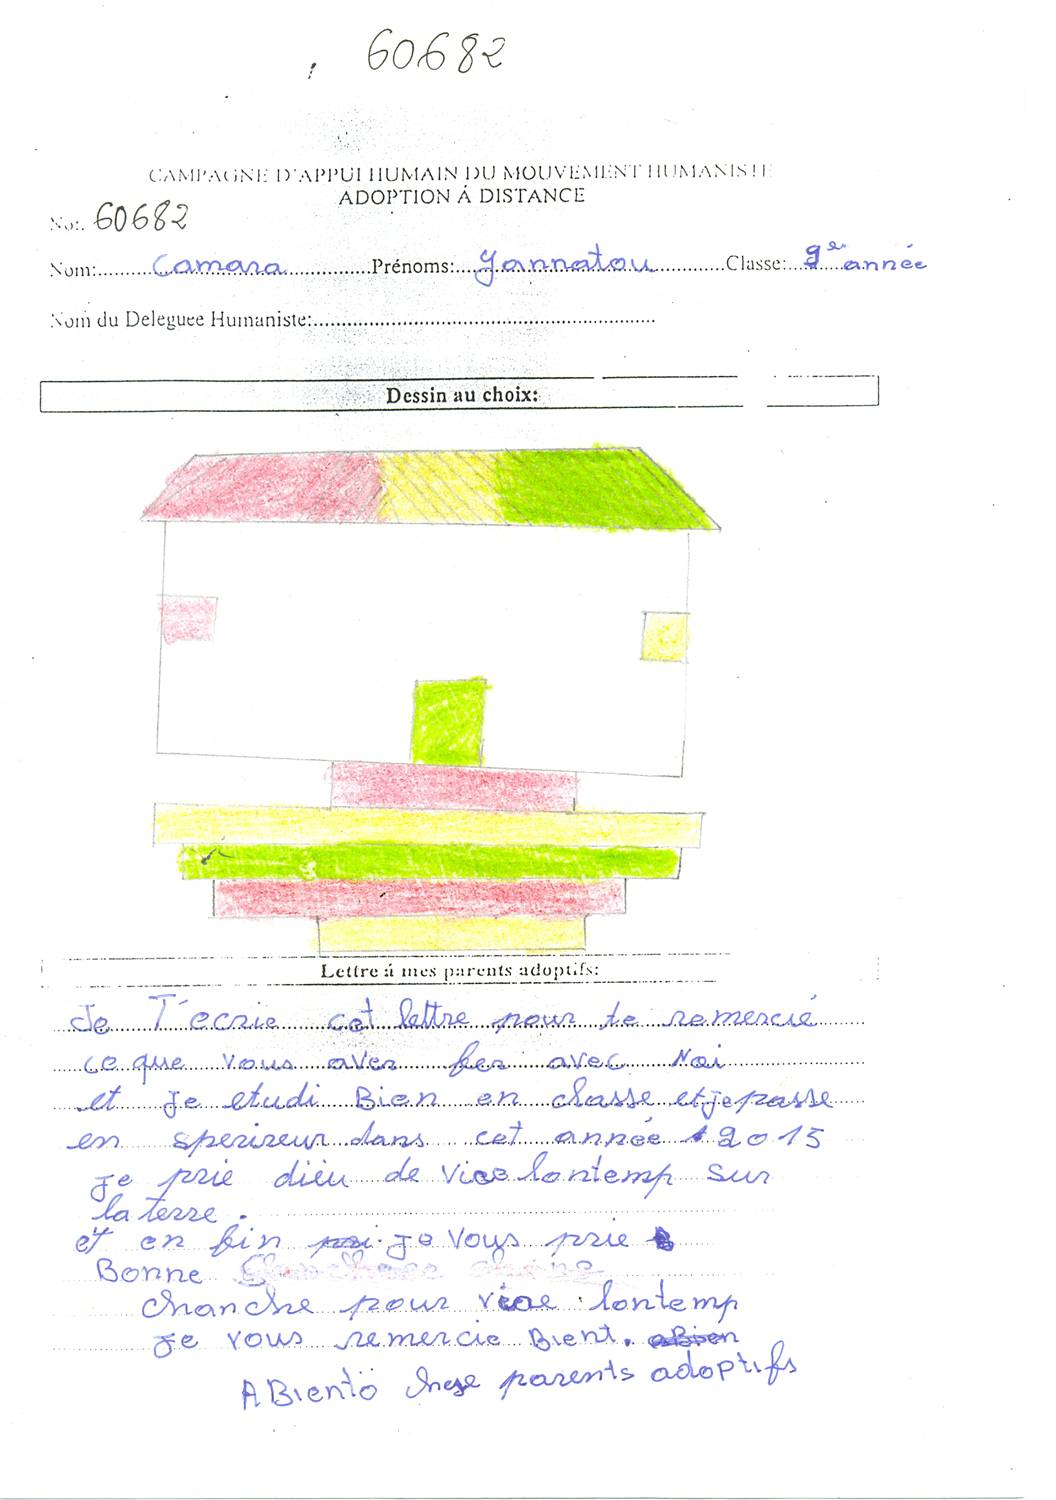 60682
CAMPAGNE D'APPUI HUMAIN DU MOUVEMENT HUMANISTE
ADOPTION Á DISTANCE
No:. 60682
Nom:.........Camara...............Prénoms:...Yannatou............Classe:...9e année
Nom du Deleguee Humaniste:.............................................................
Dessin au choix:
Lettre á mes parents adoptifs:
Je T'ecrie cet lettre pour te remercié
ce que vous aver fer avec Noi
et je etudi Bien en classe et je passe
en sperireur dans cet année 2015
je prie dièu de vice lontemp sur
la terre.
et en fin je vous prie
Bonne
chanche pour lontemp
je vous remercie Bient.
A Biento parents adoptifs